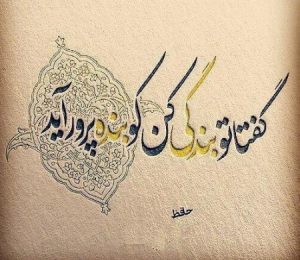 گفتا تو بندگی کن کو بنده پرور آید
حافظ